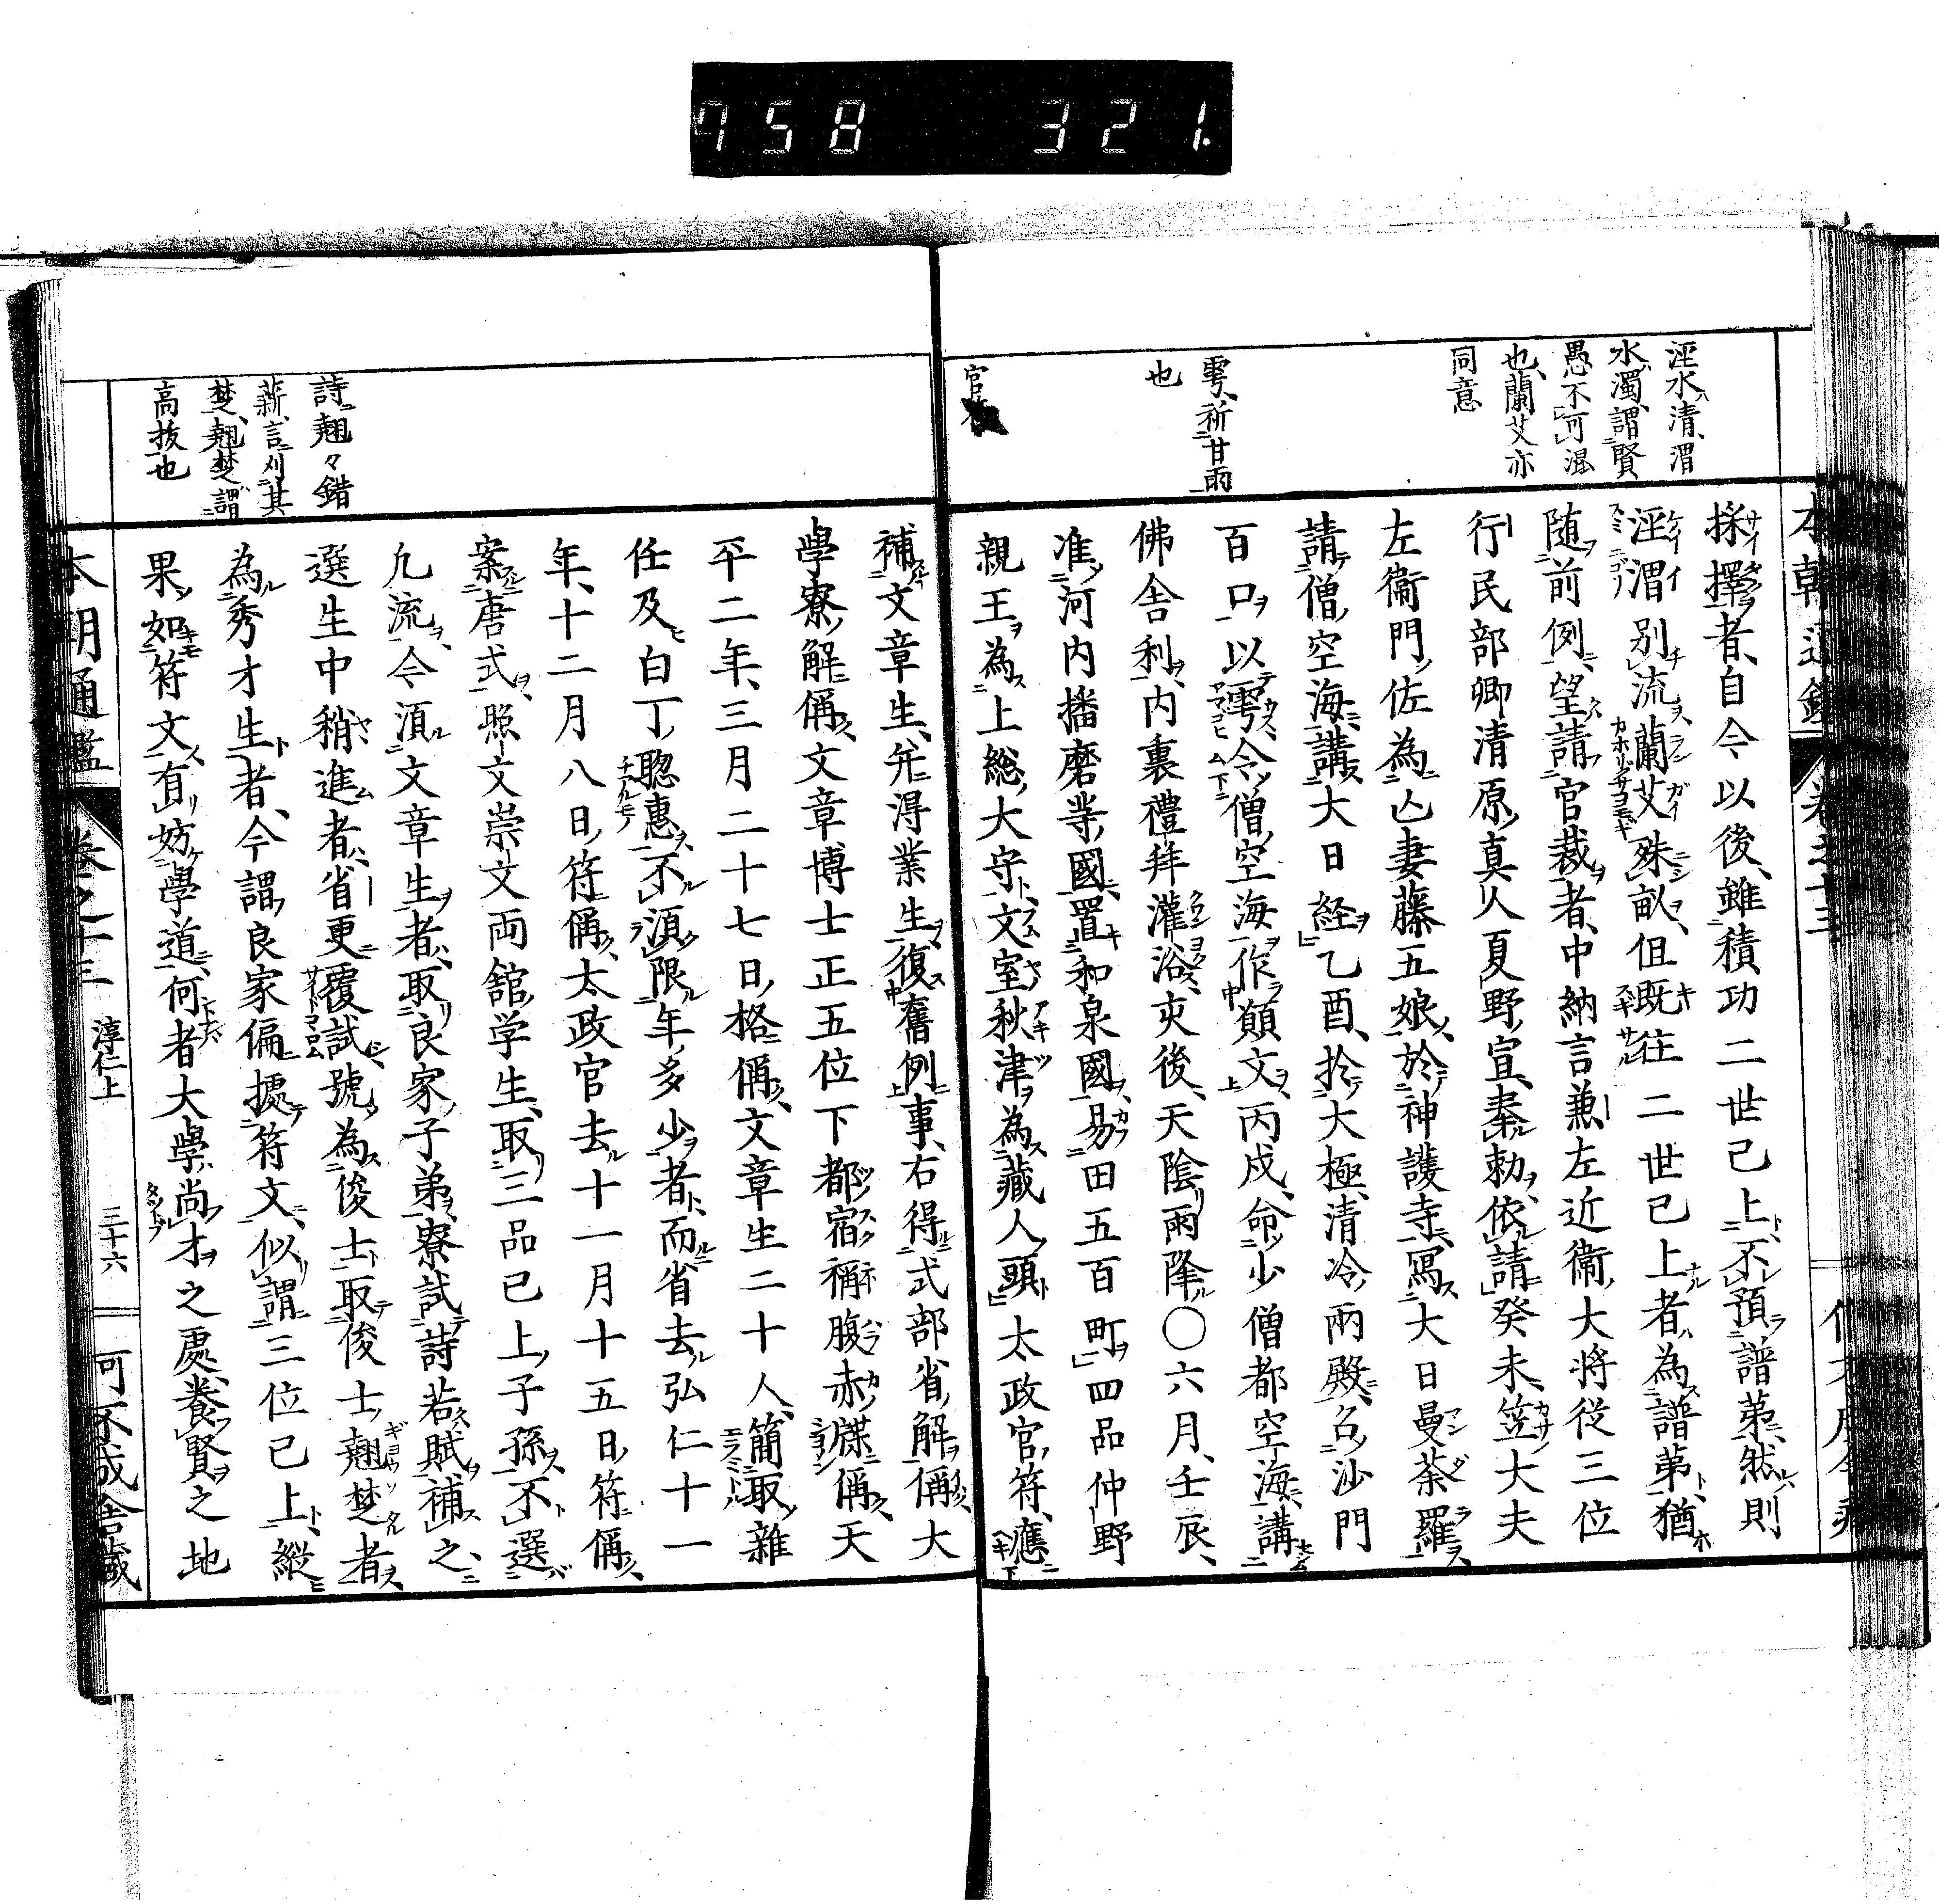 758 321.
涇水清、渭
水濁、謂賢
愚不可混
也、蘭艾亦
同意
雩、祈甘雨
也
採擇者、自今以後、雖積功二世已上、不預譜第、然則
涇渭別流、蘭艾殊畝、但既往二世已上者、為譜第、猶
随前例、望請官裁者、中納言兼左近衛大将従三位
行民部卿清原真人夏野宣、奉勅依請、癸未、笠大夫
左衞門佐為亡妻藤五娘、於神護寺、寫大日曼荼羅、
請僧空海、講大日経、乙酉、於大極清冷兩殿、召沙門
百口、以雩、令僧空海作願文、丙戌、命少僧都空海、講
佛舎利、内裏禮拜灌浴、亥後、天陰雨降〇六月、壬辰、
准河内播磨等國、置和泉國、易田五百町、四品仲野
親王為上総大守、文室秋津為藏人頭、太政官符、應
補文章生、并得業生、復舊例事、右得式部省解偁、大
學寮解偁、文章博士正五位下都宿祢腹赤牒偁、天
平二年、三月二十七日格偁、文章生二十人、簡取雜
任及白丁聰惠、不須限年多少者、而省去弘仁十一
年、十二月八日符偁、太政官去十一月十五日符偁、
案唐式、照文崇文両舘学生、取三品已上子孫、不選
凢流、今須文章生者、取良家子弟、寮試詩若賦補之、
選生中稍進者、省更覆試、號為俊士、取俊士翹楚者、
為秀才生者、今謂良家偏據符文、似謂三位已上、縱
果如符文、有妨學道、何者大學尚才之處、養賢之地
詩、翹々錯
薪、言刈其
楚、翹楚謂
高抜也
本朝通鑑 卷之十三 淳仁上 三十六 可不成舎藏